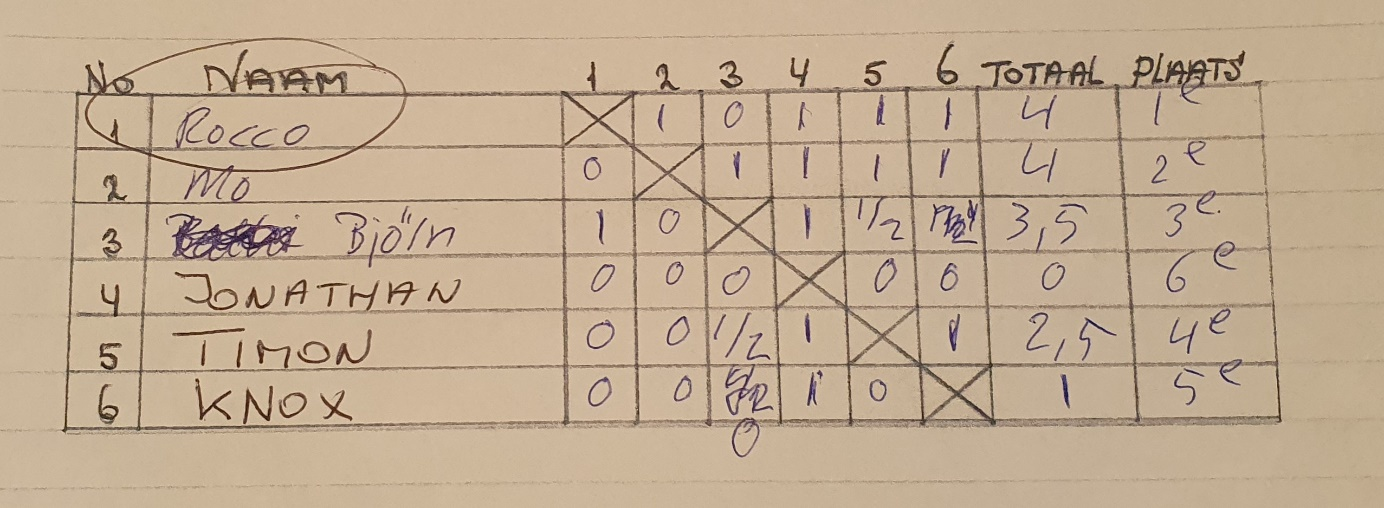 No NAAM 1 2 3 4 5 6 TOTAAL PLAATS
1 Rocco 1 0 1 1 1 4 1e
2 Mo 0 1 1 1 1 4 2e
3 Björn 1 0 1 1/2 3,5 3e
4 JONATHAN 0 0 0 0 0 0 6e
5 TIMON 0 0 1/2 1 1 2,5 4e
6 KNOX 0 0 1 0 1 5e
0